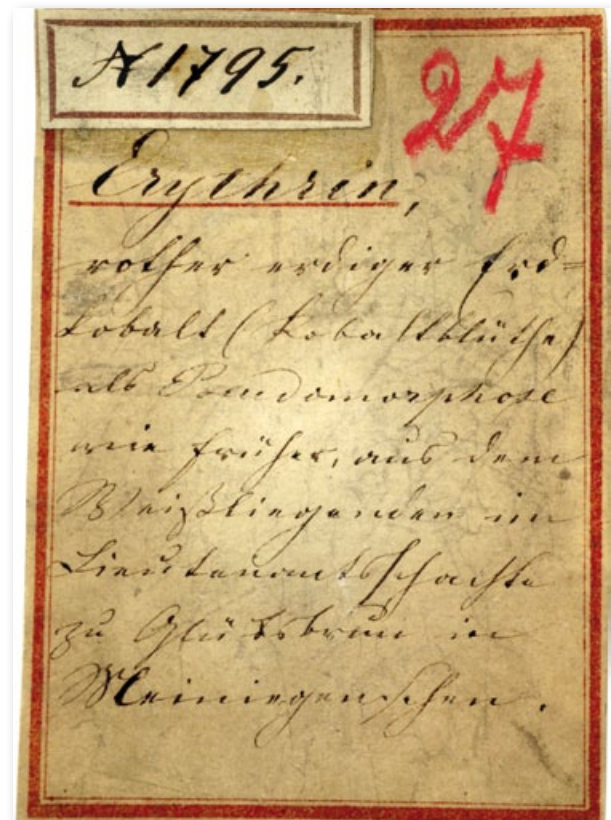 N 1795.
27
Erythrin,
rother erdiger Erd=
kobalt (Kobaltblüthe)
als Pseudomorphose
wie früher, aus dem
Weißliegenden im
Lieutenantsschachte
zu Glüksbrun im
Meiniegenschen.